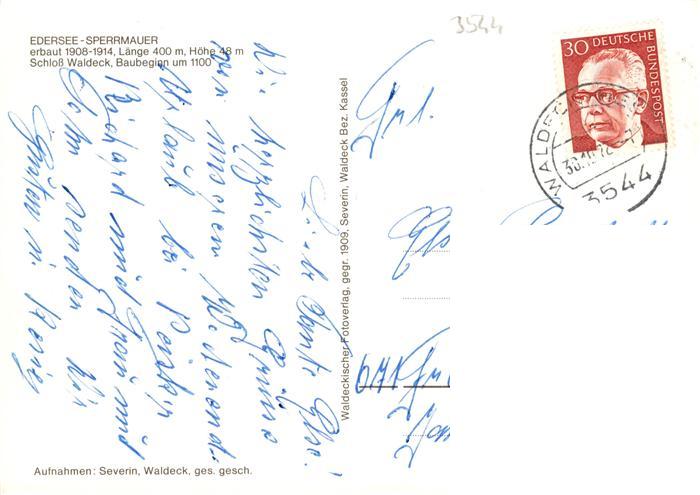 3544
EDERSEE - SPERRMAUER
erbaut 1908-1914, Länge 400 m, Höhe 48 m
Schloß Waldeck, Baubeginn um 1100
30 DEUTSCHE
BUNDESPOST
WALDECK
3544
Liebe Tante Else!
Die herzlichsten Grüsse
von unserem Wochenend-
Urlaub bei
Richard und Frau und
Sohn senden Dir
Günter u.
Frl.
Else
Waldeckischer Fotoverlag, gegr. 1909, Severin, Waldeck Bez. Kassel
Aufnahmen: Severin, Waldeck, ges. gesch.